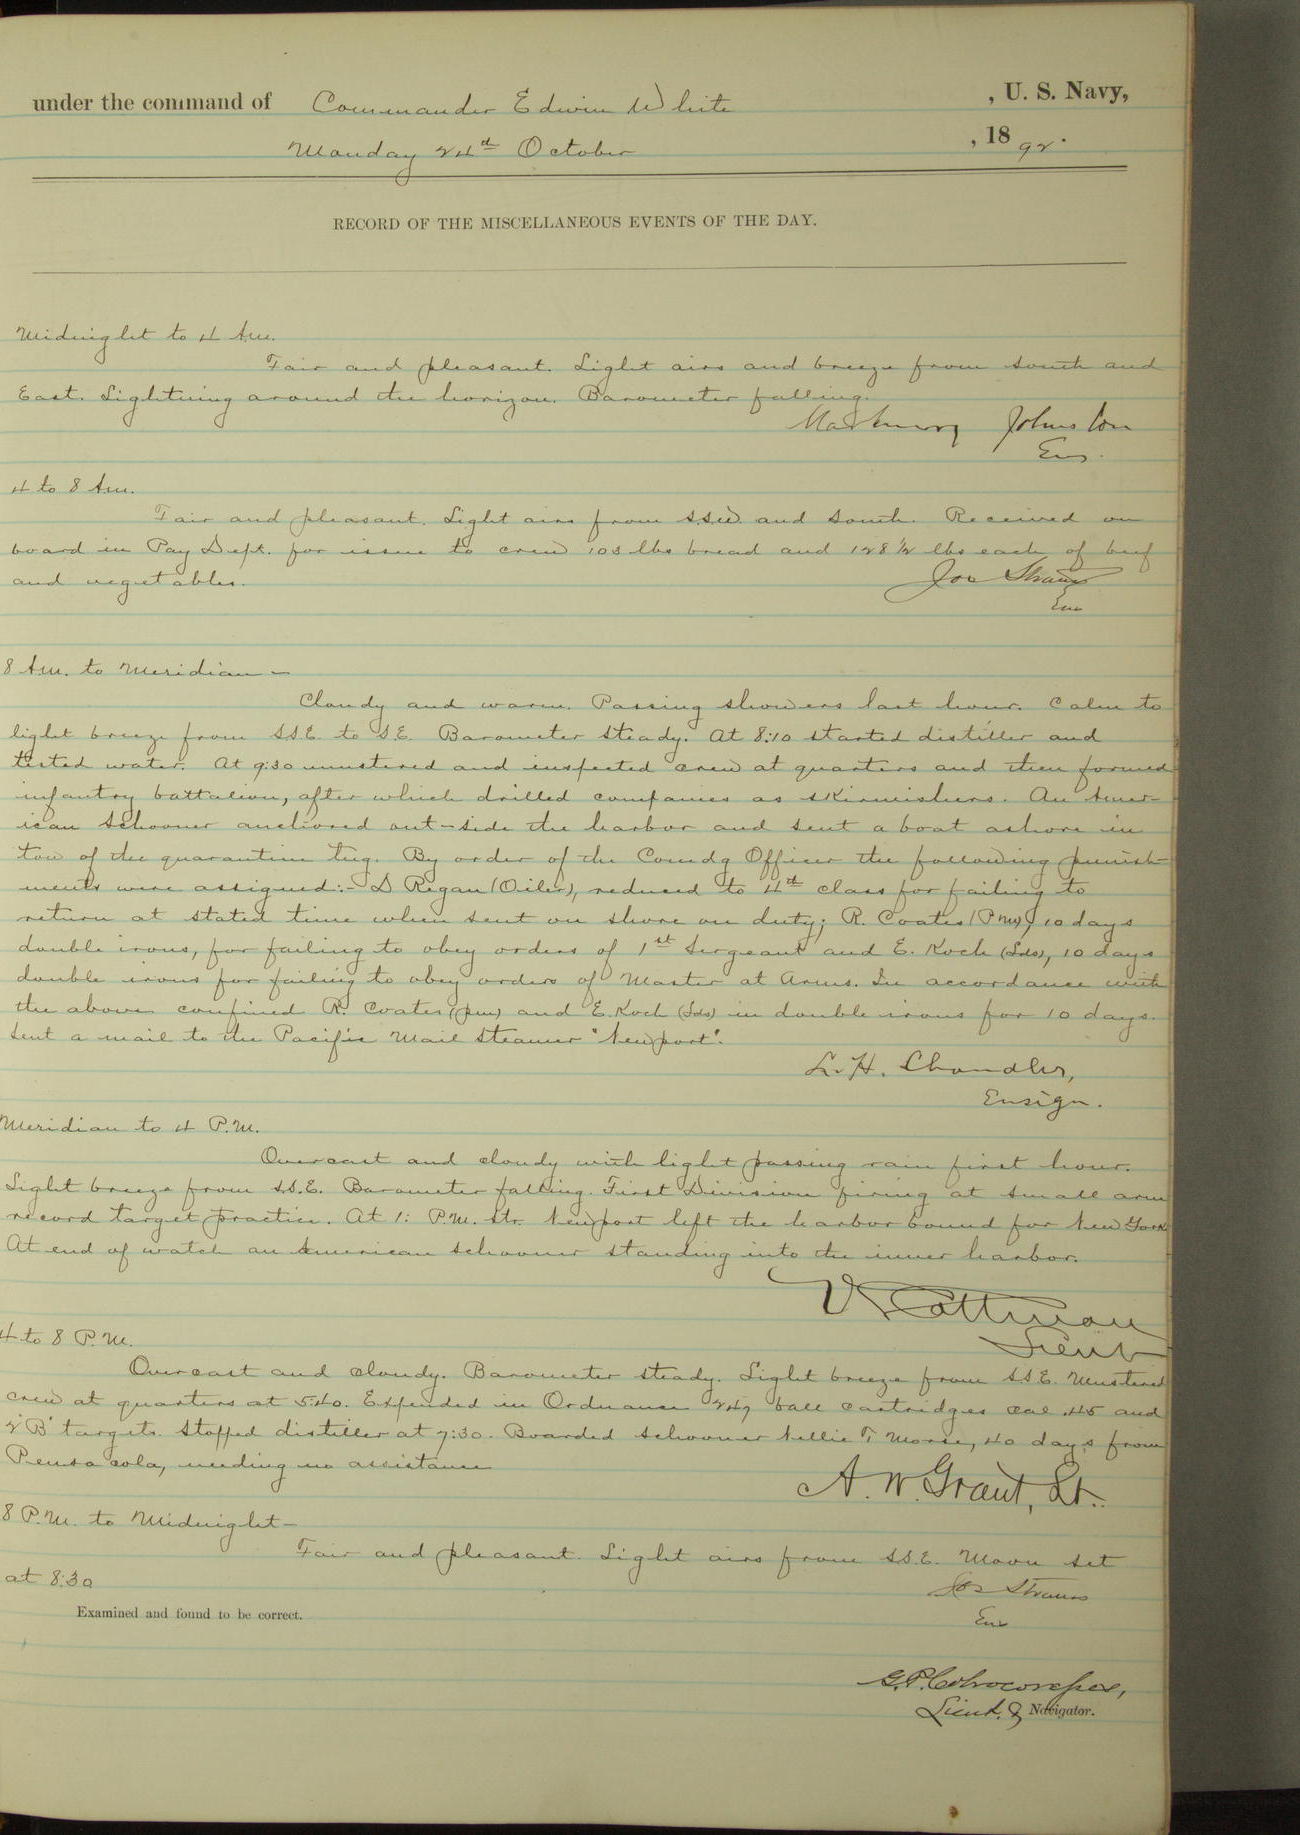 under the command of Commander Edwin White , U. S. Navy,
Monday 24th October , 1892.
RECORD OF THE MISCELLANEOUS EVENTS OF THE DAY.
Midnight to 4 Am.
Fair and pleasant. Light airs and breeze from south and
East. Lightning around the horizon. Barometer falling.
Johnston
Ens.
4 to 8 Am.
Fair and pleasant. Light airs from S.S.W and South. Received on
board in Pay Dept. for issue to crew 103 lbs bread and 128 1/2 lbs each of beef
and vegetables.
Jos Strauss
Ens
8 Am. to Meridian –
Cloudy and warm. Passing showers last hour. Calm to
light breeze from S.S.E. to S.E. Barometer steady. At 8:10 started distiller and
tested water. At 9:30 mustered and inspected crew at quarters and then formed
infantry battalion, after which drilled companies as skirmishers. An Amer-
ican Schooner anchored out-side the harbor and sent a boat ashore in
tow of the quarantine tug. By order of the Comdg Officer the following punish-
ments were assigned:- D Regan (Oiler), reduced to 4th class for failing to
return at stated time when sent on shore on duty; R. Coates (Pm), 10 days
double irons, for failing to obey orders of 1st Sergeant and E. Koch (Lds), 10 days
double irons for failing to obey orders of Master at Arms. In accordance with
the above confined R. Coates (pm) and E. Koch (Lds) in double irons for 10 days.
Sent a mail to the Pacific Mail Steamer "Newport".
L. H. Chandler,
Ensign.
Meridian to 4 P.M.
Overcast and cloudy with light passing rain first hour.
Light breeze from S.S.E. Barometer falling. First Division firing at small arm
record target practice. At 1: P.M. Str. Newport left the harbor bound for New York
At end of watch an American schooner standing into the inner harbor.
Cottman
Lieut
4 to 8 P.M.
Overcast and cloudy. Barometer steady. Light breeze from S.S.E. Mustered
crew at quarters at 5:40. Expended in Ordnance 247 ball cartridges cal .45 and
2 "B" targets. Stopped distiller at 7:30. Boarded schooner Nellie T Morse, 40 days from
Pensacola, needing no assistance
A. W. Grant, Lt.
8 P.M. to Midnight –
Fair and pleasant. Light airs from S.S.E. Moon set
at 8:30
Jos Strauss
Ens
Examined and found to be correct.
G. P. Colvocoresses,
Lieut. & Navigator.